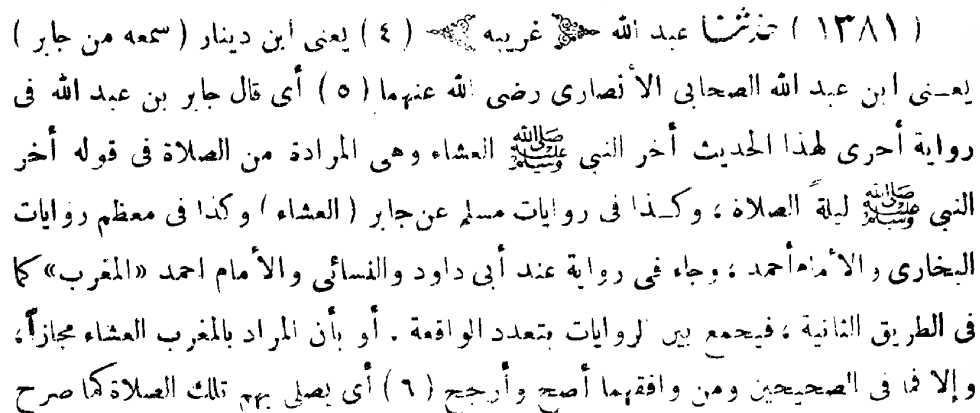 ( ١٣٨١ ) حدثنا عبد الله غريبه ( ٤ ) يعنى ابن دينار ( سمعه من جابر )
يعـنى ابن عبد الله الصحابى الأنصارى رضى الله عنهما ( ٥ ) أى قال جابر بن عبد الله فى
رواية أحرى لهذا الحديث أخر النبي ﷺ العشاء وهى المرادة من الصلاة فى قوله أخر
النبى ﷺ ليلةً الصلاة ، وكـذا فى روايات مسلم عن جابر ( العشاء ) وكذا فى معظم روايات
البخارى والأمام أحمد ، وجاء فى رواية عند أبى داود والنسائى والأمام احمد «المغرب» كما
فى الطريق الثانية ، فيجمع بين الروايات بتعدد الواقعة . أو بأن المراد بالمغرب العشاء مجازاً ،
وإلا فما فى الصحيحين ومن وافقهما أصح وأرجح ( ٦ ) أى يصلى بهم تلك الصلاة كما صرح